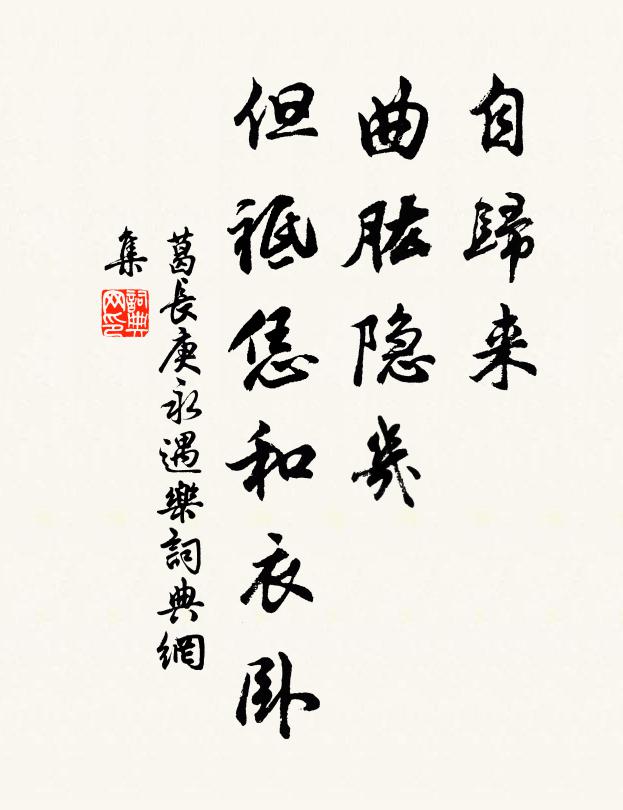 自歸来
曲肱隐幾
但祗恁和衣卧
葛長庚永遇樂詞典網
集
詞典
网印